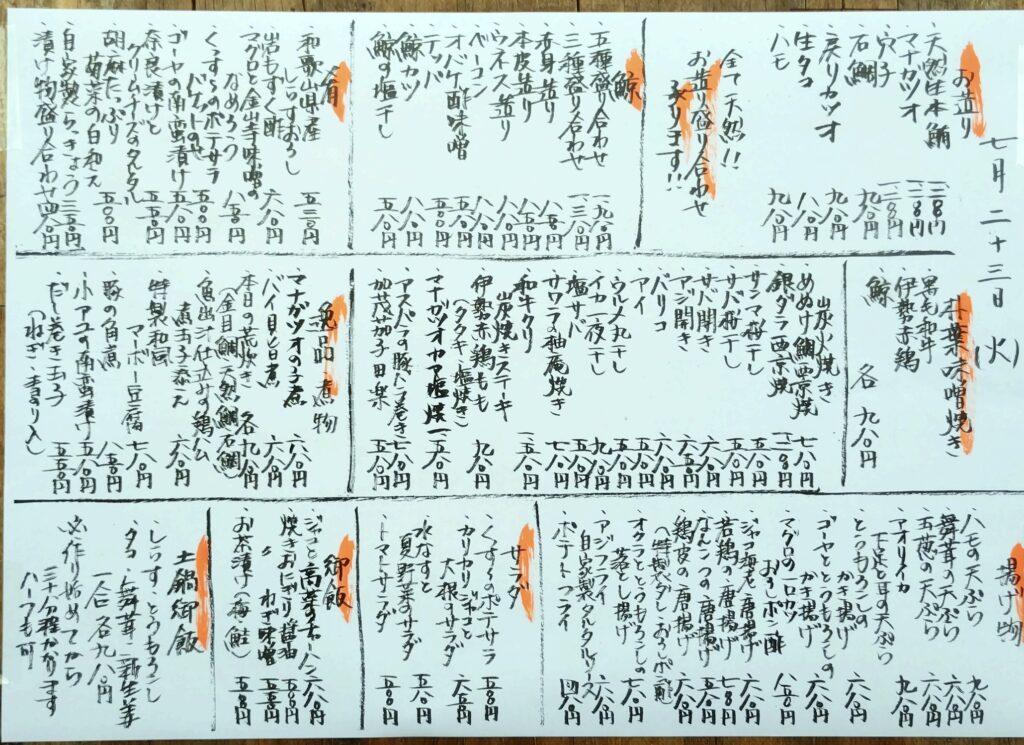 七月二十三日(火)
お造り
天然生本鮪
マナガツオ
穴子
石鯛 九八〇円
戻りカツオ 九八〇円
生タコ 八八〇円
ハモ 九八〇円
全て天然!!
お造り盛り合わせ
あります!!
鯨
五種盛り合わせ 一九八〇円
三種盛り合わせ 一三八〇円
赤身造り 八八〇円
本皮造り
ウネス造り
ベーコン
オバケ酢味噌
テッパ
鯨カツ 八八〇円
鯨の塩干し 五八〇円
肴
和歌山県産
しらすおろし 五三〇円
岩もずく酢 六八〇円
マグロと金山寺味噌の
なめろう 八八〇円
くずらのポテサラ
ゴーヤの南蛮漬け 五八〇円
奈良漬けと
クリームチーズのタルタル 五五〇円
胡麻たっぷり
菊菜の白和え 五八〇円
自家製らっきょう 三五〇円
漬け物盛り合わせ 四八〇円
朴葉味噌焼き
黒毛和牛
伊勢赤鶏
鯨
各 九八〇円
山炭火焼き
めぬけ鯛西京焼 七八〇円
銀ダラ西京焼
サンマ桜干し
サバ桜干し
サバ開き
アジ開き
バリコ
アイ
ウルメ丸干し
イカ一夜干し
塩サバ
サワラの柚庵焼き
和牛クリ
山炭焼きステーキ
伊勢赤鶏もも
(タタキ・塩焼き) 九八〇円
マナガツオカマ塩焼
アスパラの豚バラ巻き
加茂茄子田楽
逸品・煮物
マナガツオの子煮 六八〇円
バイ貝旨煮 六八〇円
本日の荒炊き 各九八〇円
(金目鯛、天然鯛、石鯛)
魚出汁仕込みの鶏ハム
煮玉子添え 六八〇円
特製和風
マーボー豆腐 七八〇円
豚の角煮 八八〇円
小アユの南蛮漬け 五八〇円
だし巻き玉子 五五〇円
揚げ物
ハモの天ぷら 九八〇円
舞茸の天ぷら 六八〇円
五葱の天ぷら 六八〇円
アオリイカ
下足と耳の天ぷら 九八〇円
とうもろこしの
かき揚げ 六八〇円
ゴーヤととうもろこしの
かき揚げ 六八〇円
マグロの一口カツ
おろしポン酢 八八〇円
ジャコ海老の唐揚げ 六八〇円
若鶏の唐揚げ 七八〇円
なんこつの唐揚げ 五八〇円
鶏皮の唐揚げ 六八〇円
(特製ダレ・おろしポン酢)
オクラととうもろこしの
落とし揚げ 七八〇円
アジフライ
自家製タルタルソース 六八〇円
ポテトフライ 四八〇円
サラダ
くずらのポテサラ 五八〇円
カリカリジャコと
大根のサラダ 六五〇円
水なすと
夏野菜のサラダ 五八〇円
トマトサラダ 五五〇円
御飯
ジャコと高菜のチャーハン 六八〇円
焼きおにぎり醤油
〃 ねぎ味噌
お茶漬け(梅・鮭)
土鍋御飯
しらす・とうもろこし
タコ・舞茸・新生姜
一合 各九八〇円
※作り始めてから
三十分程かかります
ハーフも可